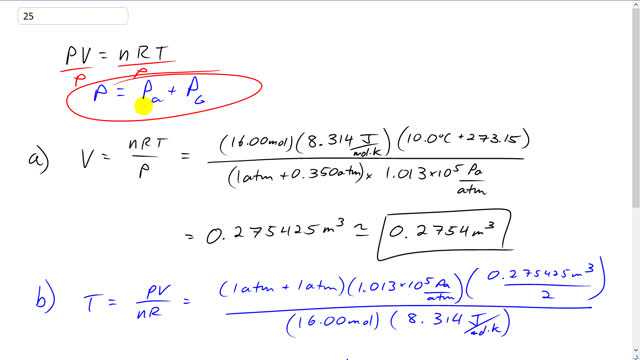 25
PV = nRT
P P
P = Pa + PG
a) V = nRT/P = (16.00mol)(8.314 J/mol.k)(10.0°C + 273.15) / (1atm + 0.350atm) × 1.013×10⁵ Pa/atm
= 0.275425m³ ≃ 0.2754m³
b) T = PV/nR = (1atm + 1atm)(1.013×10⁵ Pa/atm)(0.275425m³/2) / (16.00mol)(8.314 J/mol.k)